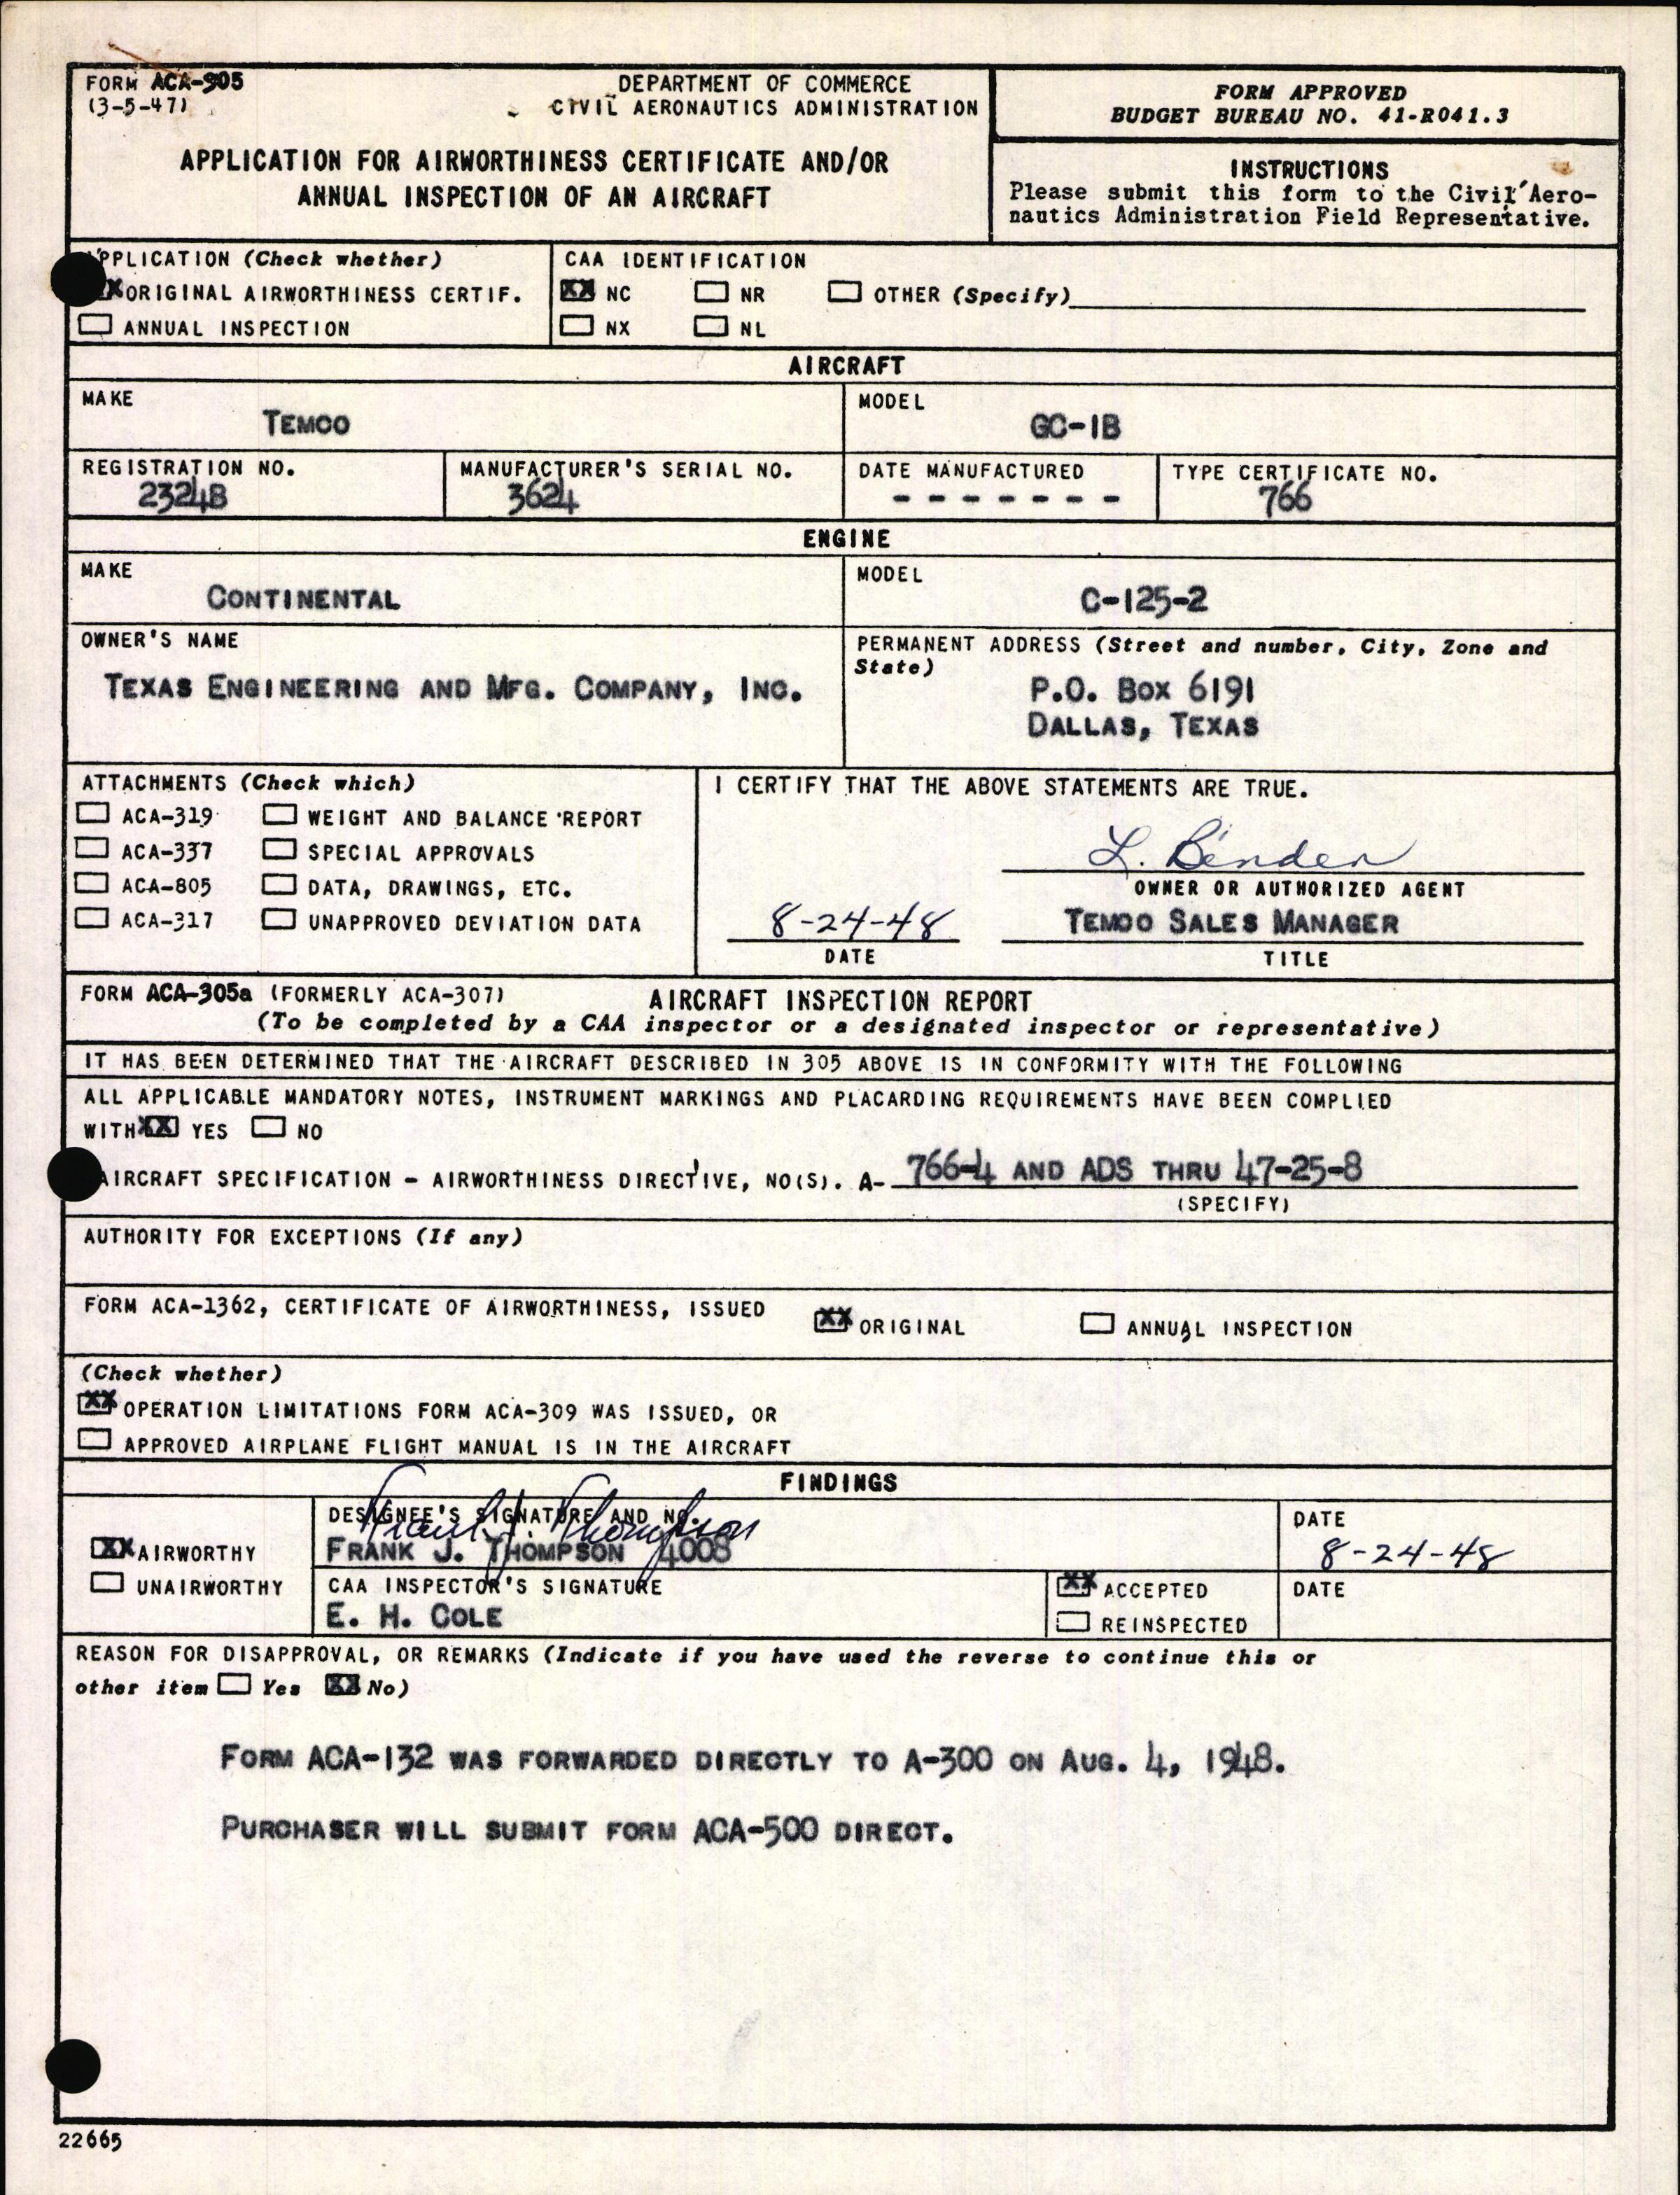 FORM ACA-305
(3-5-47)
DEPARTMENT OF COMMERCE
CIVIL AERONAUTICS ADMINISTRATION
APPLICATION FOR AIRWORTHINESS CERTIFICATE AND/OR
ANNUAL INSPECTION OF AN AIRCRAFT
FORM APPROVED
BUDGET BUREAU NO. 41-R041.3
INSTRUCTIONS
Please submit this form to the Civil Aero-
nautics Administration Field Representative.
APPLICATION (Check whether)
X ORIGINAL AIRWORTHINESS CERTIF.
ANNUAL INSPECTION
CAA IDENTIFICATION
XX NC NR OTHER (Specify)
NX NL
AIRCRAFT
MAKE
TEMCO
MODEL
GC-1B
REGISTRATION NO.
2324B
MANUFACTURER'S SERIAL NO.
3624
DATE MANUFACTURED
- - - - - - -
TYPE CERTIFICATE NO.
766
ENGINE
MAKE
CONTINENTAL
MODEL
C-125-2
OWNER'S NAME
TEXAS ENGINEERING AND MFG. COMPANY, INC.
PERMANENT ADDRESS (Street and number, City, Zone and
State)
P.O. BOX 6191
DALLAS, TEXAS
ATTACHMENTS (Check which)
ACA-319 WEIGHT AND BALANCE REPORT
ACA-337 SPECIAL APPROVALS
ACA-805 DATA, DRAWINGS, ETC.
ACA-317 UNAPPROVED DEVIATION DATA
I CERTIFY THAT THE ABOVE STATEMENTS ARE TRUE.
L. Bender
OWNER OR AUTHORIZED AGENT
8-24-48
DATE
TEMCO SALES MANAGER
TITLE
FORM ACA-305a (FORMERLY ACA-307) AIRCRAFT INSPECTION REPORT
(To be completed by a CAA inspector or a designated inspector or representative)
IT HAS BEEN DETERMINED THAT THE AIRCRAFT DESCRIBED IN 305 ABOVE IS IN CONFORMITY WITH THE FOLLOWING
ALL APPLICABLE MANDATORY NOTES, INSTRUMENT MARKINGS AND PLACARDING REQUIREMENTS HAVE BEEN COMPLIED
WITH XX YES NO
AIRCRAFT SPECIFICATION - AIRWORTHINESS DIRECTIVE, NO(S). A- 766-4 AND ADS THRU 47-25-8
(SPECIFY)
AUTHORITY FOR EXCEPTIONS (If any)
FORM ACA-1362, CERTIFICATE OF AIRWORTHINESS, ISSUED XX ORIGINAL ANNUAL INSPECTION
(Check whether)
XX OPERATION LIMITATIONS FORM ACA-309 WAS ISSUED, OR
APPROVED AIRPLANE FLIGHT MANUAL IS IN THE AIRCRAFT
FINDINGS
XX AIRWORTHY
UNAIRWORTHY
DESIGNEE'S SIGNATURE AND NO.
Frank J. Thompson
FRANK J. THOMPSON 4008
DATE
8-24-48
CAA INSPECTOR'S SIGNATURE
E. H. COLE
XX ACCEPTED
REINSPECTED
DATE
REASON FOR DISAPPROVAL, OR REMARKS (Indicate if you have used the reverse to continue this or
other item Yes XX No)
FORM ACA-132 WAS FORWARDED DIRECTLY TO A-300 ON AUG. 4, 1948.
PURCHASER WILL SUBMIT FORM ACA-500 DIRECT.
22665